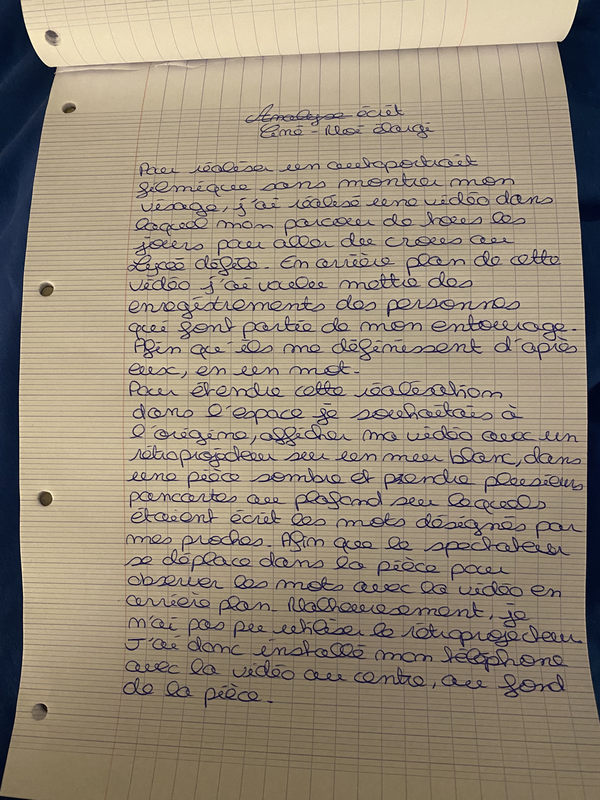 Analyse écrit
Ciné-Moi élargi
Pour réaliser un autoportrait
filmique sans montrer mon
visage, j'ai réalisé une vidéo dans
laquel mon parcour de tous les
jours pour aller du crous au
Lycée défile. En arrière plan de cette
vidéo j'ai voulu mettre des
enregistrements des personnes
qui font partie de mon entourage.
Afin qu'ils me définissent d'après
eux, en un mot.
Pour étendre cette réalisation
dans l'espace je souhaitais à
l'origine, afficher ma vidéo avec un
rétroprojecteur sur un mur blanc, dans
une pièce sombre et pendre plusieurs
pancartes au plafond sur lequels
étaient écrit les mots désignés par
mes proches. Afin que le spectateur
se déplace dans la pièce pour
observer les mots avec la vidéo en
arrière plan. Malheureusement, je
n'ai pas pu utiliser le rétroprojecteur
J'ai donc installé mon téléphone
avec la vidéo au centre, au fond
de la pièce.